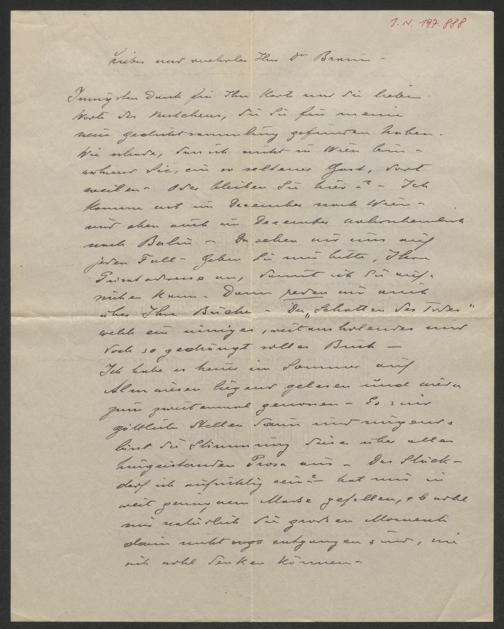 I.N. 197.888
Lieber und verehrter Herr Dr Braun -
Innigsten Dank für Ihre Karte und die lieben
Worte des Verstehens, die Sie für meine
neue Gedichtsammlung gefunden haben.
Wie schade, dass ich nicht in Wien bin -
während Sie, ein so seltener Gast, dort
weilen - Oder bleiben Sie hier? - Ich
komme erst im Dezember nach Wien -
und eben auch im Dezember wahrscheinlich
nach Berlin - Da sehen wir uns auf
jeden Fall - Geben Sie mir bitte, Ihre
Privatadresse an, damit ich Sie auf-
suchen kann. Dann reden wir auch
über Ihre Bücher - Der "Schatten des Todes"
welch ein einziges, weitausholendes und
doch so gedrängt volles Buch -
Ich habe es heuer im Sommer auf
Almwiesen liegend gelesen und
zum zweitenmal genommen - Es sind
göttliche Stellen darin und nirgends
lässt die Stimmung dieser über allem
Prosa aus - Das Stück -
darf ich aufrichtig sein? hat mir in
weit geringerem Masse gefallen, obwohl
mir natürlich die grossen Momente
darin nicht entgangen sind, wie
sich wohl denken können -